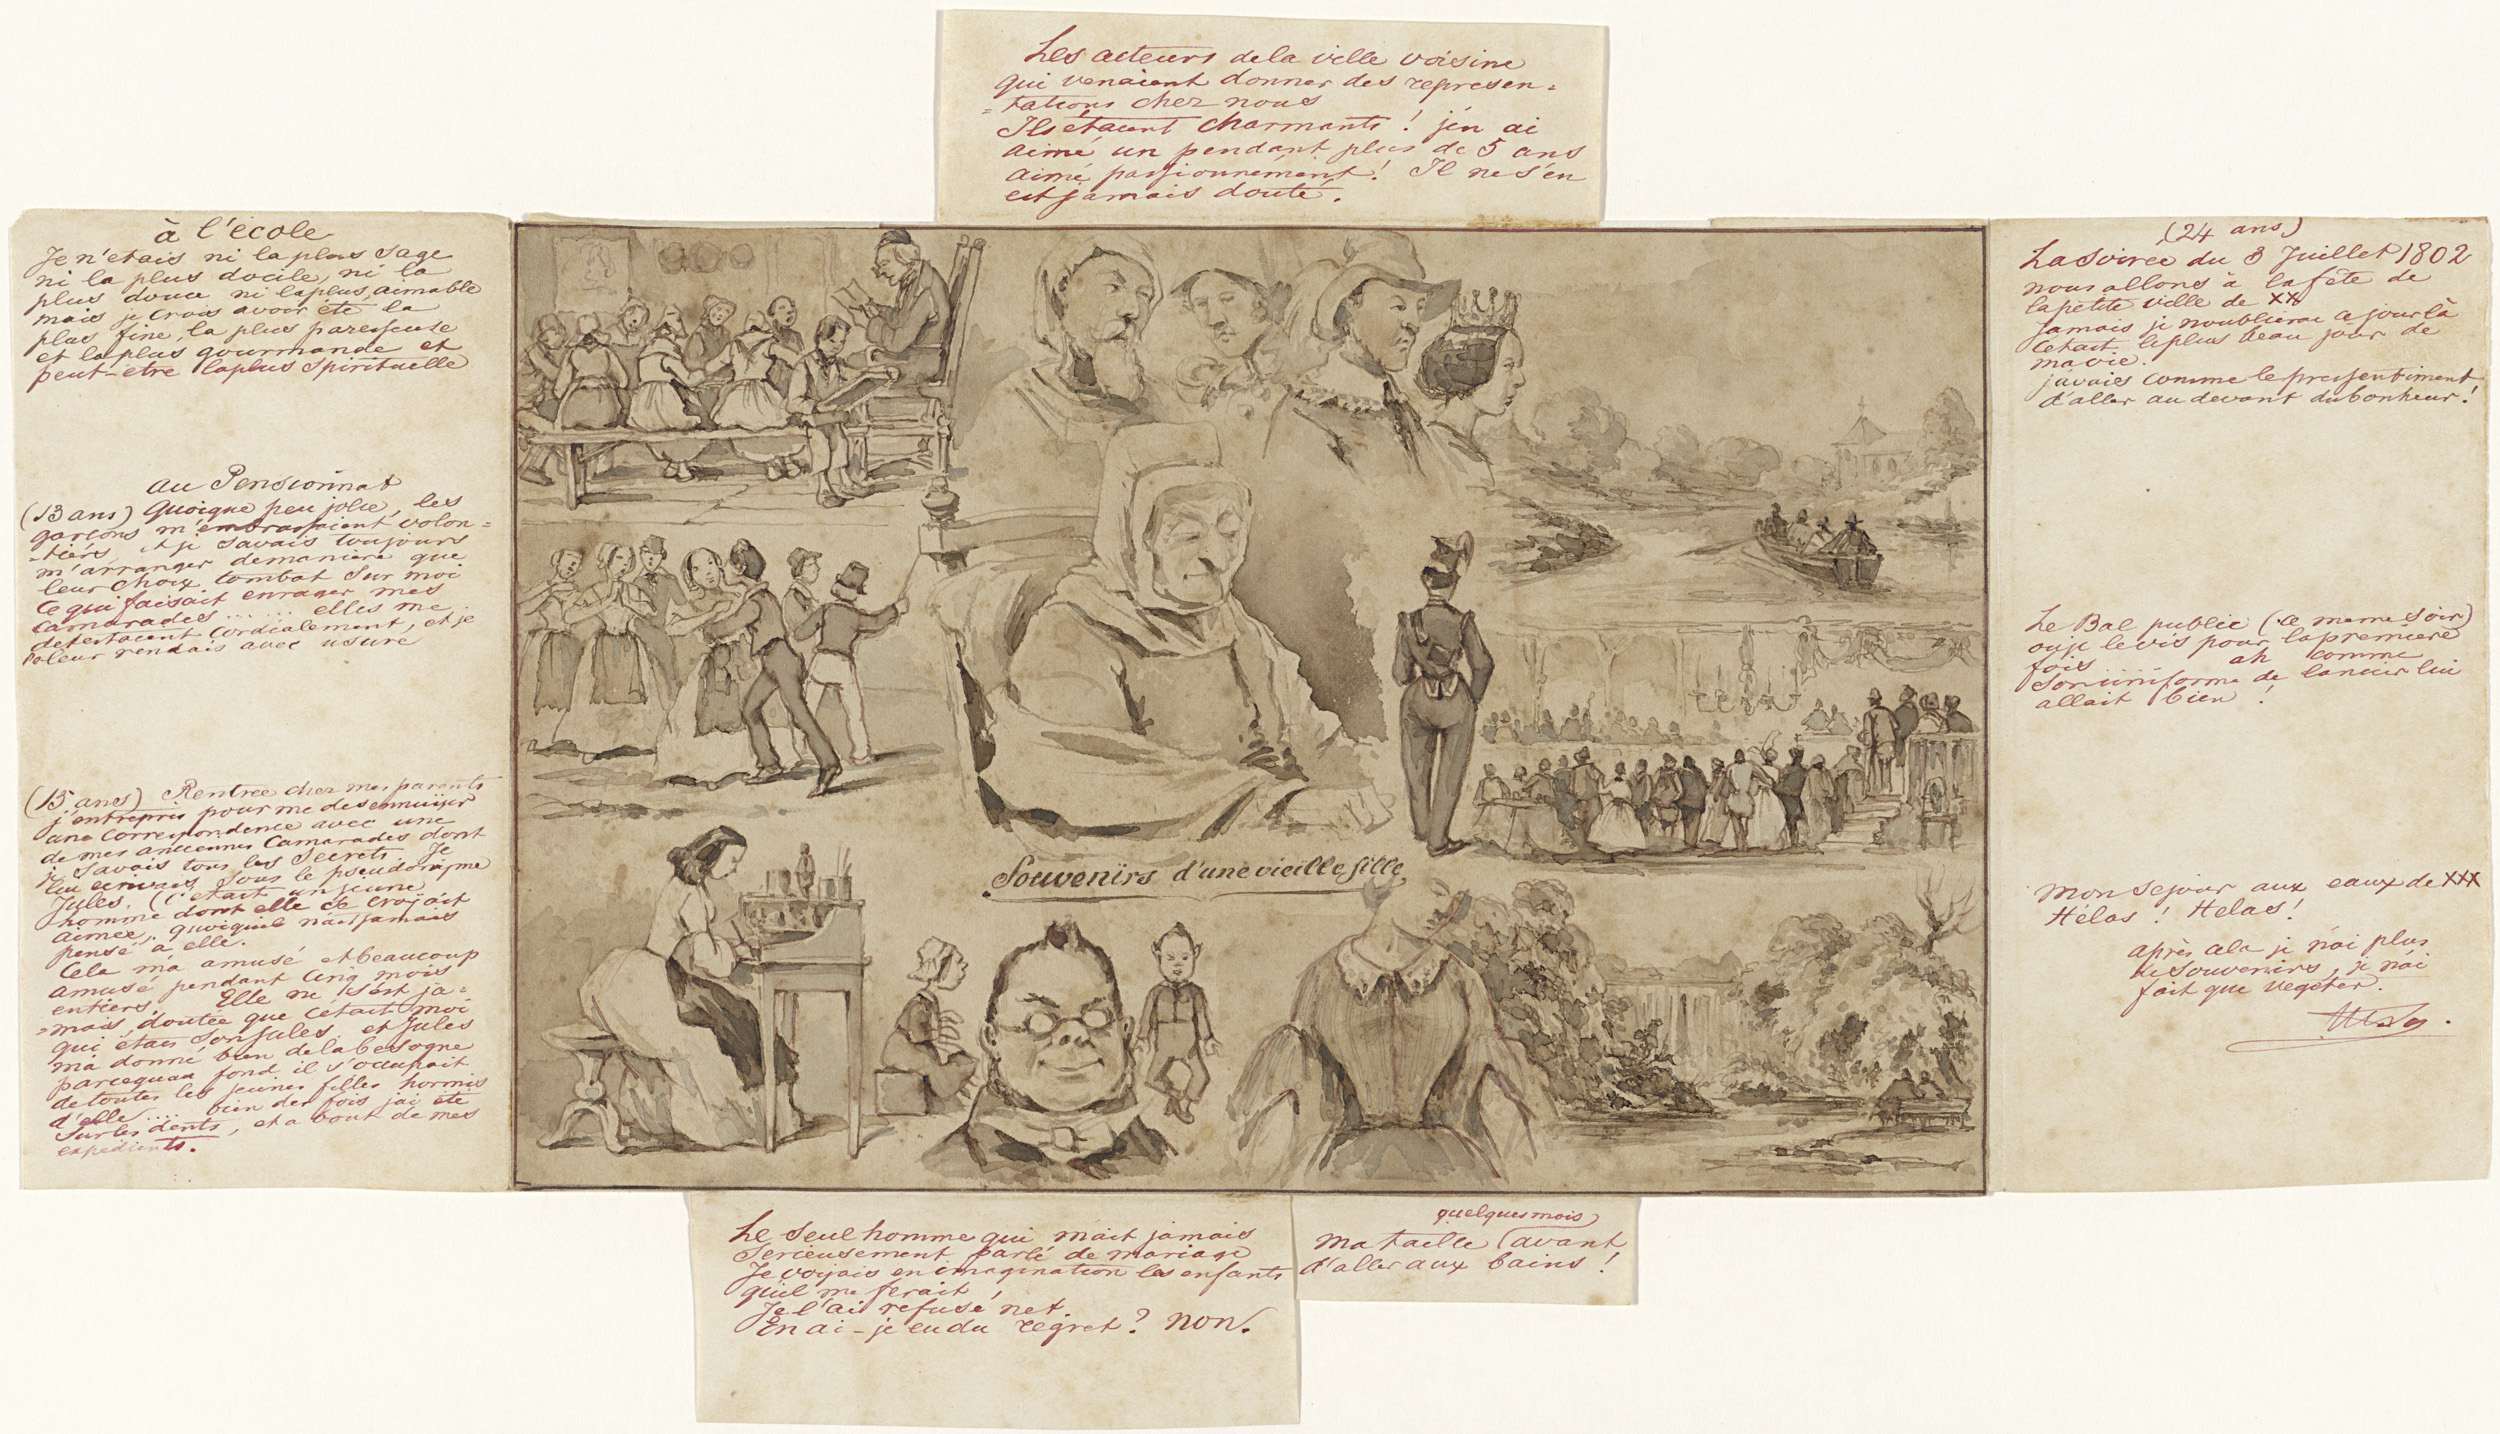 Les acteurs de la ville voisine
qui venaient donner des represen=
=tations chez nous
Ils étaient charmants! j'en ai
aimé un pendant plus de 5 ans
aimé passionnément! Il ne s'en
est jamais douté.
à l'école
Je n'etais ni la plus sage
ni la plus docile, ni la
plus douce ni la plus aimable
mais je crois avoir été la
plus fine, la plus paresseuse
et la plus gourmande et
peut-etre la plus spirituelle
au Pensionnat
(13 ans) Quoique peu jolie, les
garçons m'embrassaient volon=
-tiers, et je savais toujours
m'arranger de maniere que
leur choix tombat sur moi
ce qui faisait enrager mes
camarades...... elles me
detestaient cordialement, et je
le leur rendais avec usure
(15 ans) Rentrée chez mes parents
j'entrepris pour me desennuijer
une correspondence avec une
de mes anciennes camarades dont
je savais tous les secrets. Je
lui ecrivais sous le pseudonijme
Jules. (c'etait un jeune
homme dont elle se croyait
aimée, quoiqu'il n'ait jamais
pensé à elle.
Cela m'a amusé et beaucoup
amusé pendant cinq mois
entiers. Elle ne s'est ja=
=mais doutée que c'était moi
qui étais son Jules. et Jules
m'a donné bien de la besogne
parcequ'au fond il s'occupait
de toutes les jeunes filles hormis
d'elle.... bien des fois j'ai été
sur les dents, et a bout de mes
expedients.
Souvenirs d'une vieille fille
(24 ans)
La soirée du 8 Juillet 1802
nous allons à la fête de
la petite ville de XX
Jamais je n'oublierai ce jour là
c'etait le plus beau jour de
ma vie.
j'avais comme le pressentiment
d'aller au devant du bonheur!
Le Bal public (ce meme soir)
ou je le vis pour la premiere
fois ...... ah comme
son uniforme de lancier lui
allait bien!
Mon sejour aux eaux de XXX
Hélas! Helas!
après cela je n'ai plus
de souvenirs, je n'ai
fait que vegéter.
Le seul homme qui m'ait jamais
serieusement parlé de mariage
Je voijais en imagination les enfants
qu'il me ferait,
Je l'ai refusé net.
En ai-je eu du regret? non.
quelques mois
Ma taille (avant
d'aller aux bains!